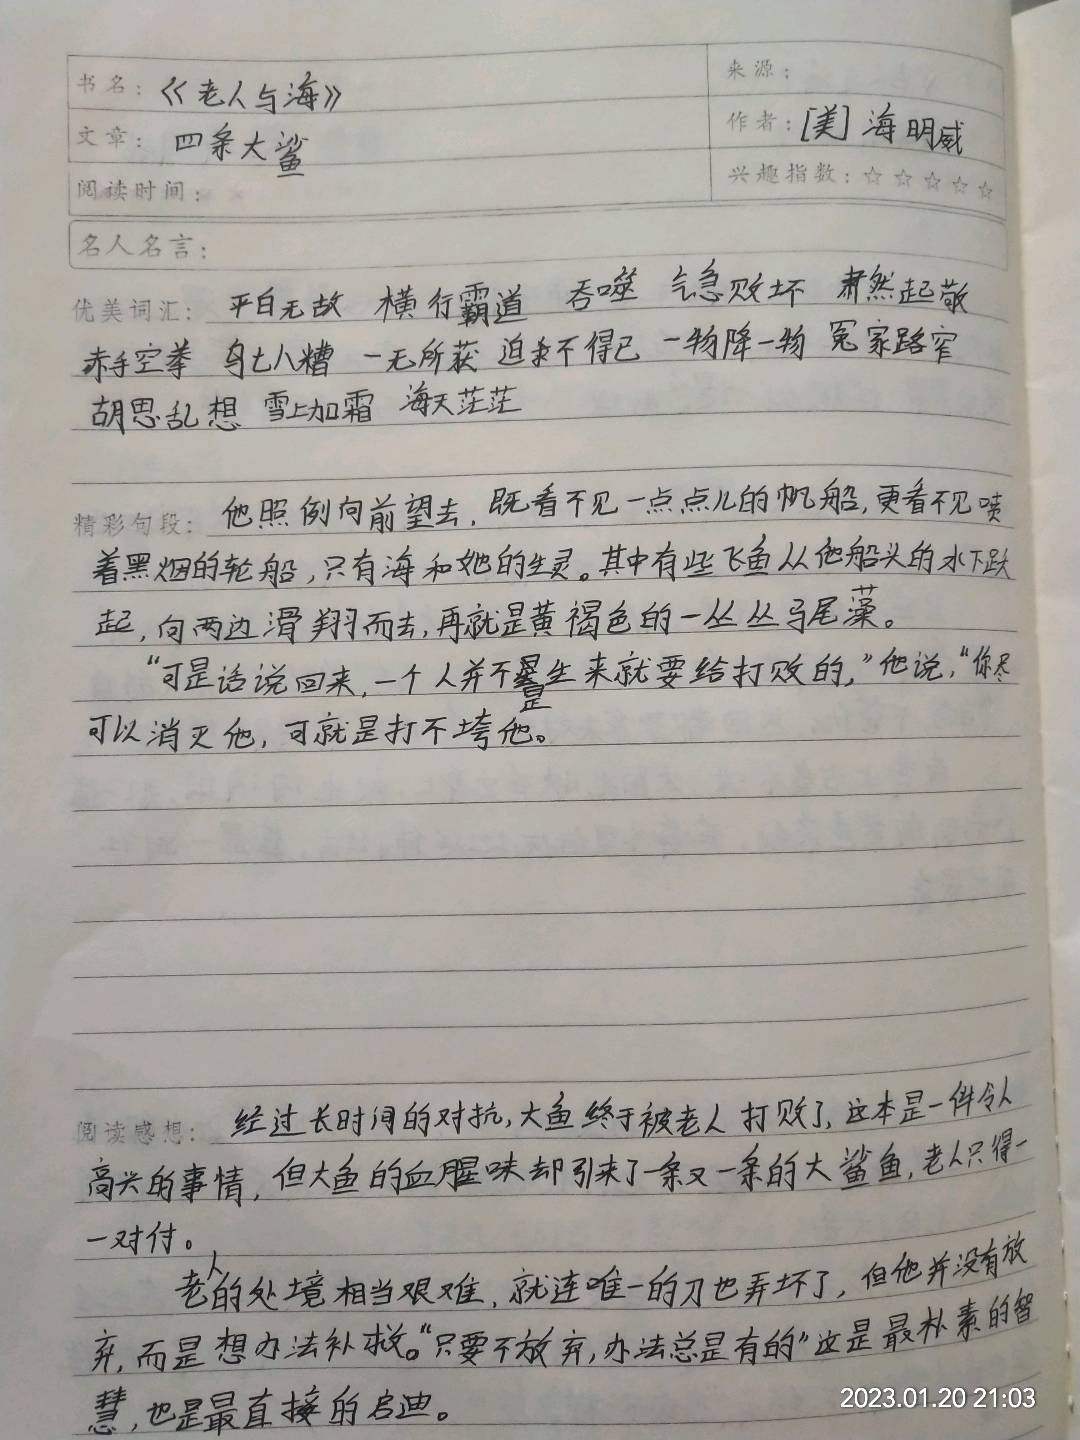 书名：《老人与海》
来源：
文章：四条大鲨
作者：[美]海明威
阅读时间：
兴趣指数：☆☆☆☆☆
名人名言：
优美词汇：平白无故 横行霸道 吞噬 气急败坏 肃然起敬
赤手空拳 乌七八糟 一无所获 迫不得已 一物降一物 冤家路窄
胡思乱想 雪上加霜 海天茫茫
精彩句段：他照例向前望去，既看不见一点点儿的帆船，更看不见喷
着黑烟的轮船，只有海和她的生灵。其中有些飞鱼从他船头的水下跃
起，向两边滑翔而去，再就是黄褐色的一丛丛马尾藻。
“可是话说回来，一个人并不是生来就要给打败的，”他说，“你尽
可以消灭他，可就是打不垮他。
阅读感想：经过长时间的对抗，大鱼终于被老人打败了，这本是一件令人
高兴的事情，但大鱼的血腥味却引来了一条又一条的大鲨鱼，老人只得一
一对付。
老人的处境相当艰难，就连唯一的刀也弄坏了，但他并没有放
弃，而是想办法补救。“只要不放弃，办法总是有的”这是最朴素的智
慧，也是最直接的启迪。
2023.01.20 21:03